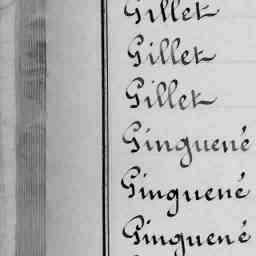 Gillet
Gillet
Gillet
Ginguené
Ginguené
Ginguené